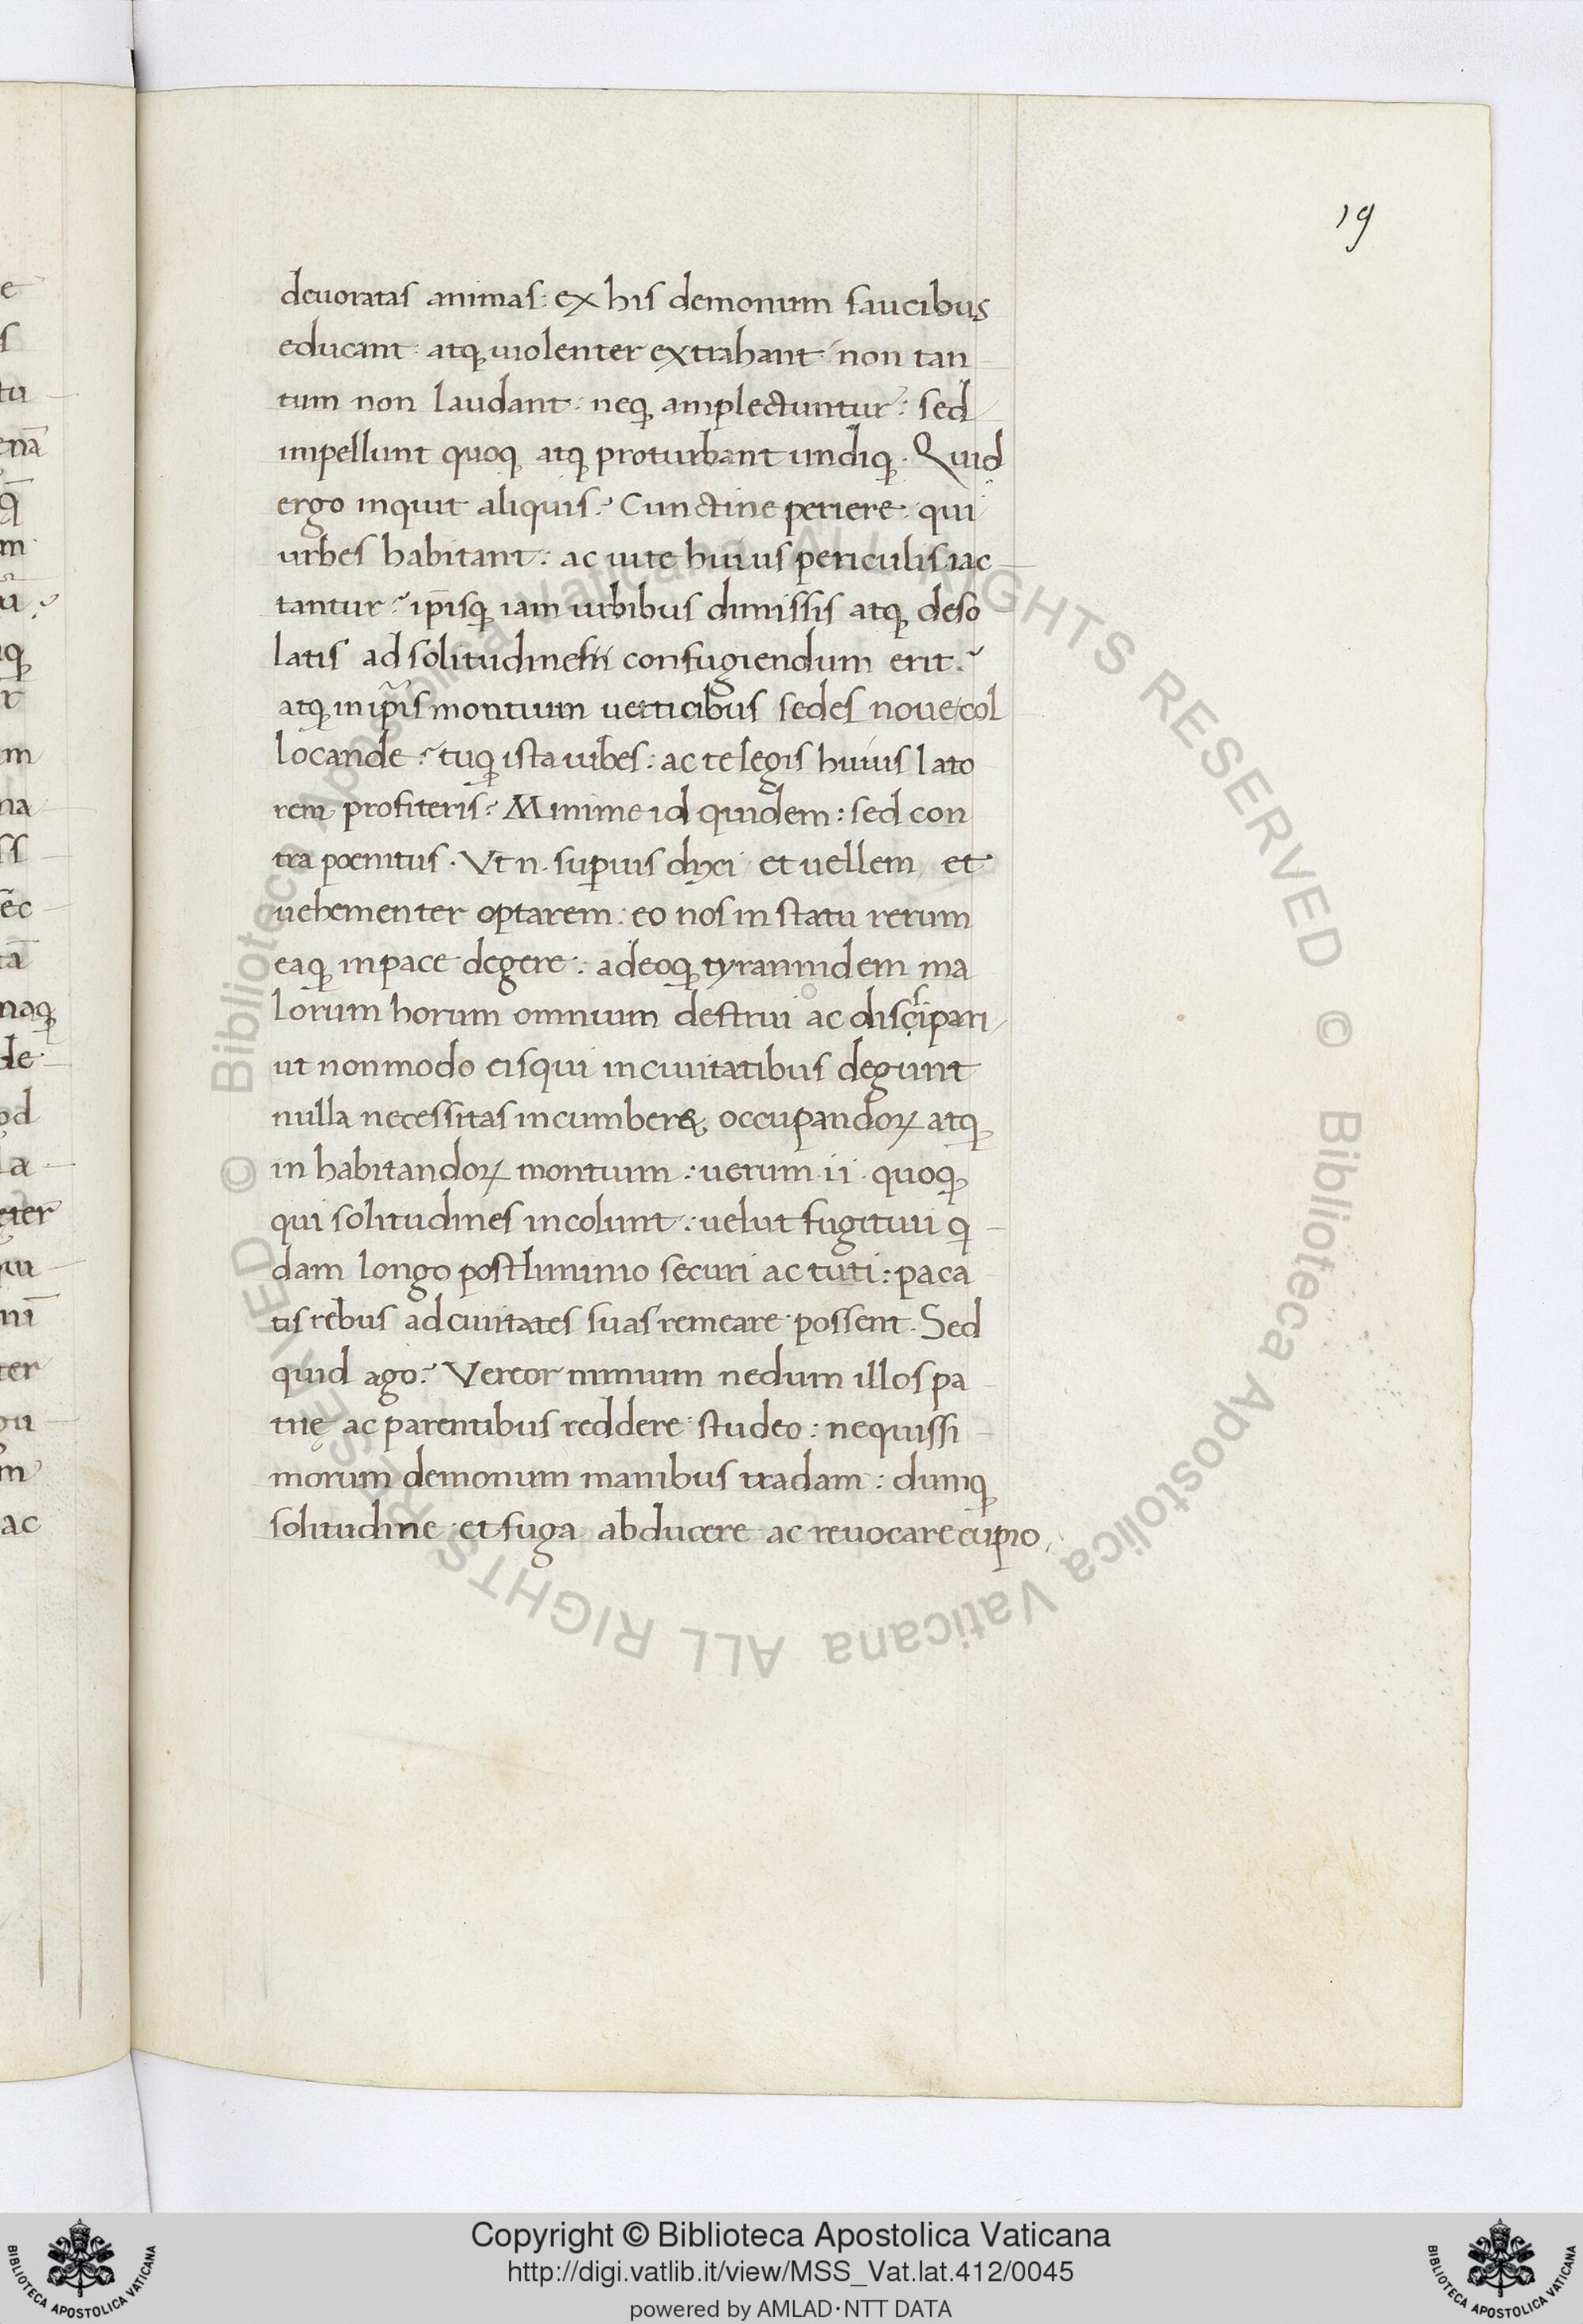 19
deuoratas animas: ex his demonum faucibus
educant: atq; uiolenter extrahant: non tan
tum non laudant: neq; amplectuntur: sed
impellunt quoq; atq; proturbant undiq;. Quid
ergo inquit aliquis? Cunctine periere: qui
urbes habitant: ac uite huius periculis iac
tantur? ip̄isq; iam urbibus dimissis atq; deso
latis ad solitudinem confugiendum erit?
atq; in ip̄is montium uerticibus sedes noue col
locande? tuq; ista iubes: ac te legis huius lato
rem profiteris? Minime id quidem: sed con
tra poenitus. Vt n. superius dixi et uellem et
uehementer optarem: eo nos in statu rerum
eaq; in pace degere: adeoq; tyrannidem ma
lorum horum omnium destrui ac discipari
ut non modo eis qui in ciuitatibus degunt
nulla necessitas incumber&, occupandoꝝ atq;
in habitandoꝝ montium: uerum ii quoq;
qui solitudines incolunt: uelut fugitiui q
dam longo postliminio securi ac tuti: paca
tis rebus ad ciuitates suas remeare possent. Sed
quid ago? Vereor nimium ne dum illos pa
trię ac parentibus reddere studeo: nequissi
morum demonum manibus tradam: dumq;
solitudine et fuga abducere ac reuocare cupio,
e
s
tu
enā
q̄
m
u?
q;
r
m
na
ss
ēc
tā
naq;
de
od
la
eter
ui
nī
ter
ou
m
ac
© Biblioteca Apostolica Vaticana ALL RIGHTS RESERVED
© Biblioteca Apostolica Vaticana ALL RIGHTS RESERVED
Copyright © Biblioteca Apostolica Vaticana
http://digi.vatlib.it/view/MSS_Vat.lat.412/0045
powered by AMLAD·NTT DATA
BIBLIOTECA APOSTOLICA VATICANA
BIBLIOTECA APOSTOLICA VATICANA